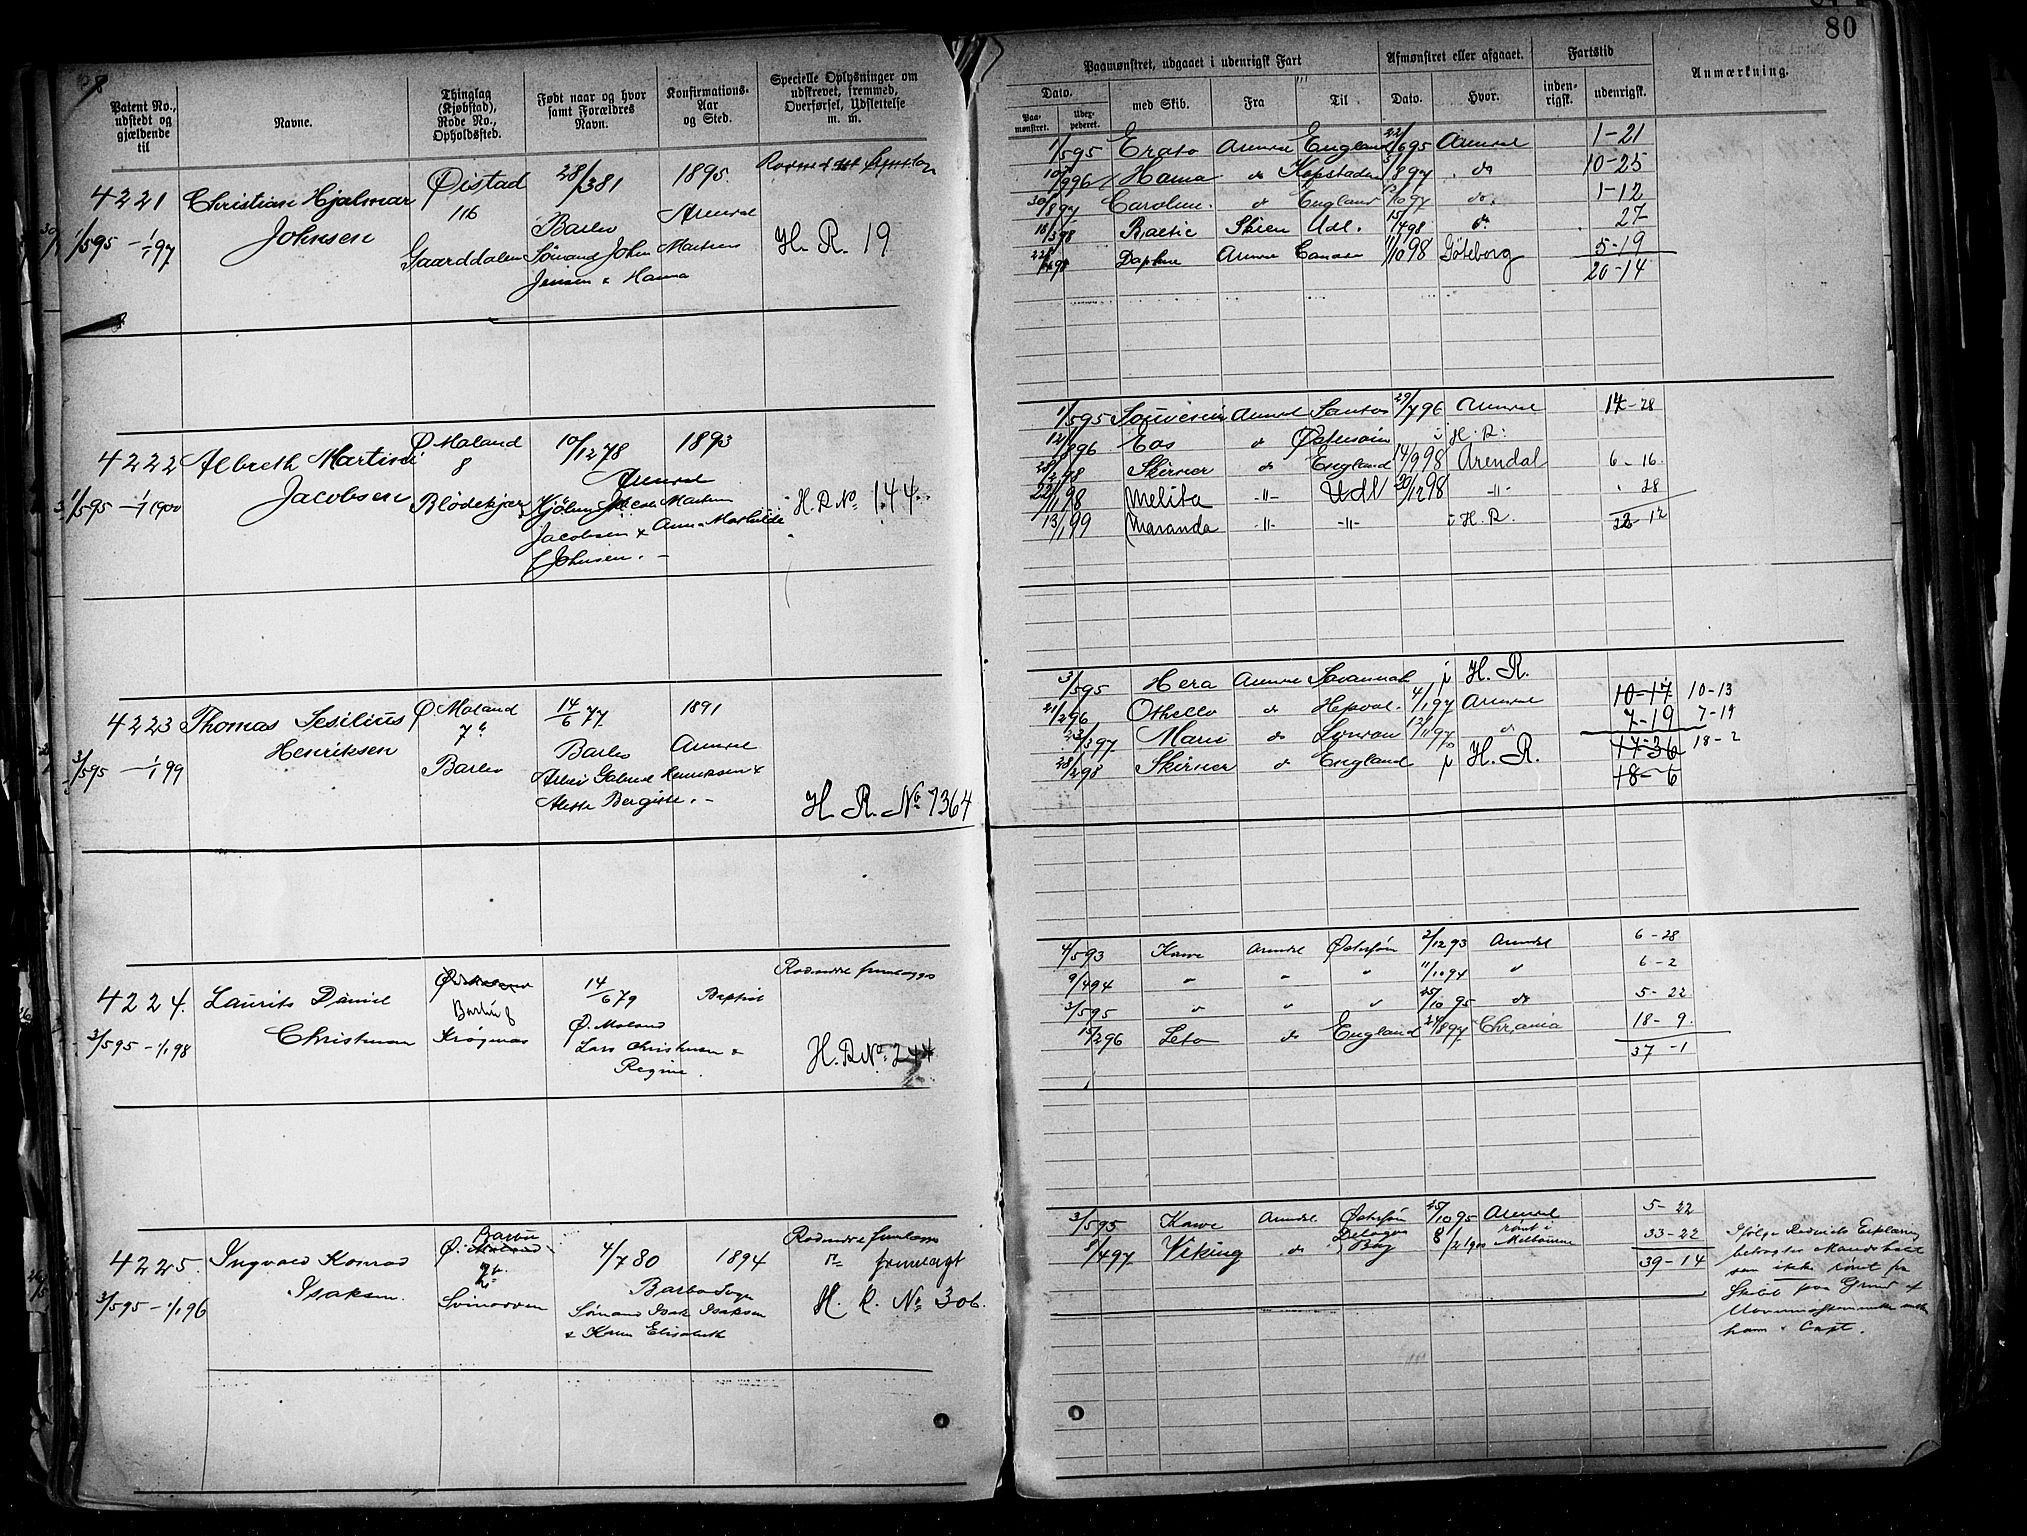 80
Patent No., udstedt og gjældende til
Navne.
Thinglag (Kjøbstad), Rode No., Opholdssted.
Født naar og hvor samt Forældres Navn.
Konfirmations-Aar og Sted.
Specielle Oplysninger om udskrevet, fremmed, Overførsel, Udslettelse m. m.
Paamønstret, udgaaet i udenrigsk Fart
Dato.
Paa-mønstret.
Udex-pederet.
med Skib.
Fra
Til
Afmønstret eller afgaaet.
Dato.
Hvor.
Fartstid
inden-rigsk.
udenrigsk.
Anmærkning.
4221 Christian Hjalmar Øistad 28/3 81 1895
Johnsen 116 Barbo Arendal
1/5 95 – 1/1 97 Gaarddalen Sømand John Martin H. R. 19
Jensen & Hanna
1/5 95 Erato Arendal England 22/6 95 Arendal 1-21
Hanna do Kapstaden do 10-25
30/8 97 Caroline do England do 1-12
18/3 98 Baltic Skien Udl. 15/4 98 do 27
Daphne Arendal 11/10 98 Göteborg 5-19
20-14
4222 Albreth Martin Ø. Moland 10/12 78 1893
Jacobsen 8 Arendal
1/5 95 – 1/1 1900 Blødekjær H. R No. 144
Jacobsen & Anna Mathilde
Johnsen. –
1/5 95 Arendal Santos 29/7 96 Arendal 14-28
12/8 96 Eos do Østersøen i H. R.
28/2 98 Skirner do England 14/9 98 Arendal 6-16
22/11 98 Melita -"- Udl 20/12 98 -"- 28
13/1 99 Maranda -"- -"- i H. R. 22-12
4223 Thomas Sesilius Ø. Moland 14/6 77 1891
Henriksen 7 Barbo Arendal
3/5 95 – 1/1 99 Barbo Gabriel Henriksen &
Bergitte. –
H. R. No 1364
3/5 95 Hera Arendal Savannah i H. R.
21/2 96 Othello do 4/1 97 Arendal 10-17 10-13
23/3 97 Marie do do 7-19 7-19
28/2 98 Skirner do England i H. R. 17-36 18-2
18-6
4224. Laurits Daniel Ø. Moland 14/6 79 Baptist Rodmdre fremlagt
Barbu 8
3/5 95 – 1/1 98 Christensen Krøgenes Ø. Moland
Lars Christensen &
Regine.
H. R No. 244
4/5 93 Kawe Arendal Østersøen 2/12 93 Arendal 6-28
9/4 94 " " " 11/10 94 " 6-2
3/5 95 " " " 25/10 95 do 5-22
15/2 96 Leto do England 24/8 97 Chrania 18-9
37-1
4225. Ingvald Konrad Barbu 4/7 80 1894 Rodmdre fremlagt
Ø. Moland
Isaksen. Barbo Sogn fremlagt
3/5 95 – 1/1 96 Sømand Isak Isaksen H. R. No 306.
& Karen Elisabeth
3/5 95 Kawe Arendal Østersøen 25/10 95 Arendal 5-22
8/4 97 Viking do Delagoa Bay rømt i Melbourne 33-22
39-14
Ifølge Rederiets Erklæring
betragtes Mandskabet
som ikke rømt fra
Skibet paa Grund af
ham & Capt.